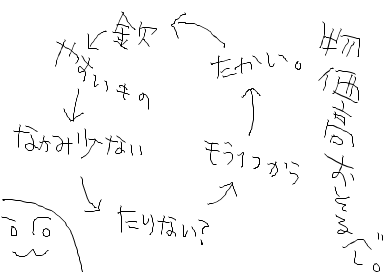 物価高おそるべし。
金欠
やすいもの
なかみ少ない
たりない?
もう1つかう
たかい。